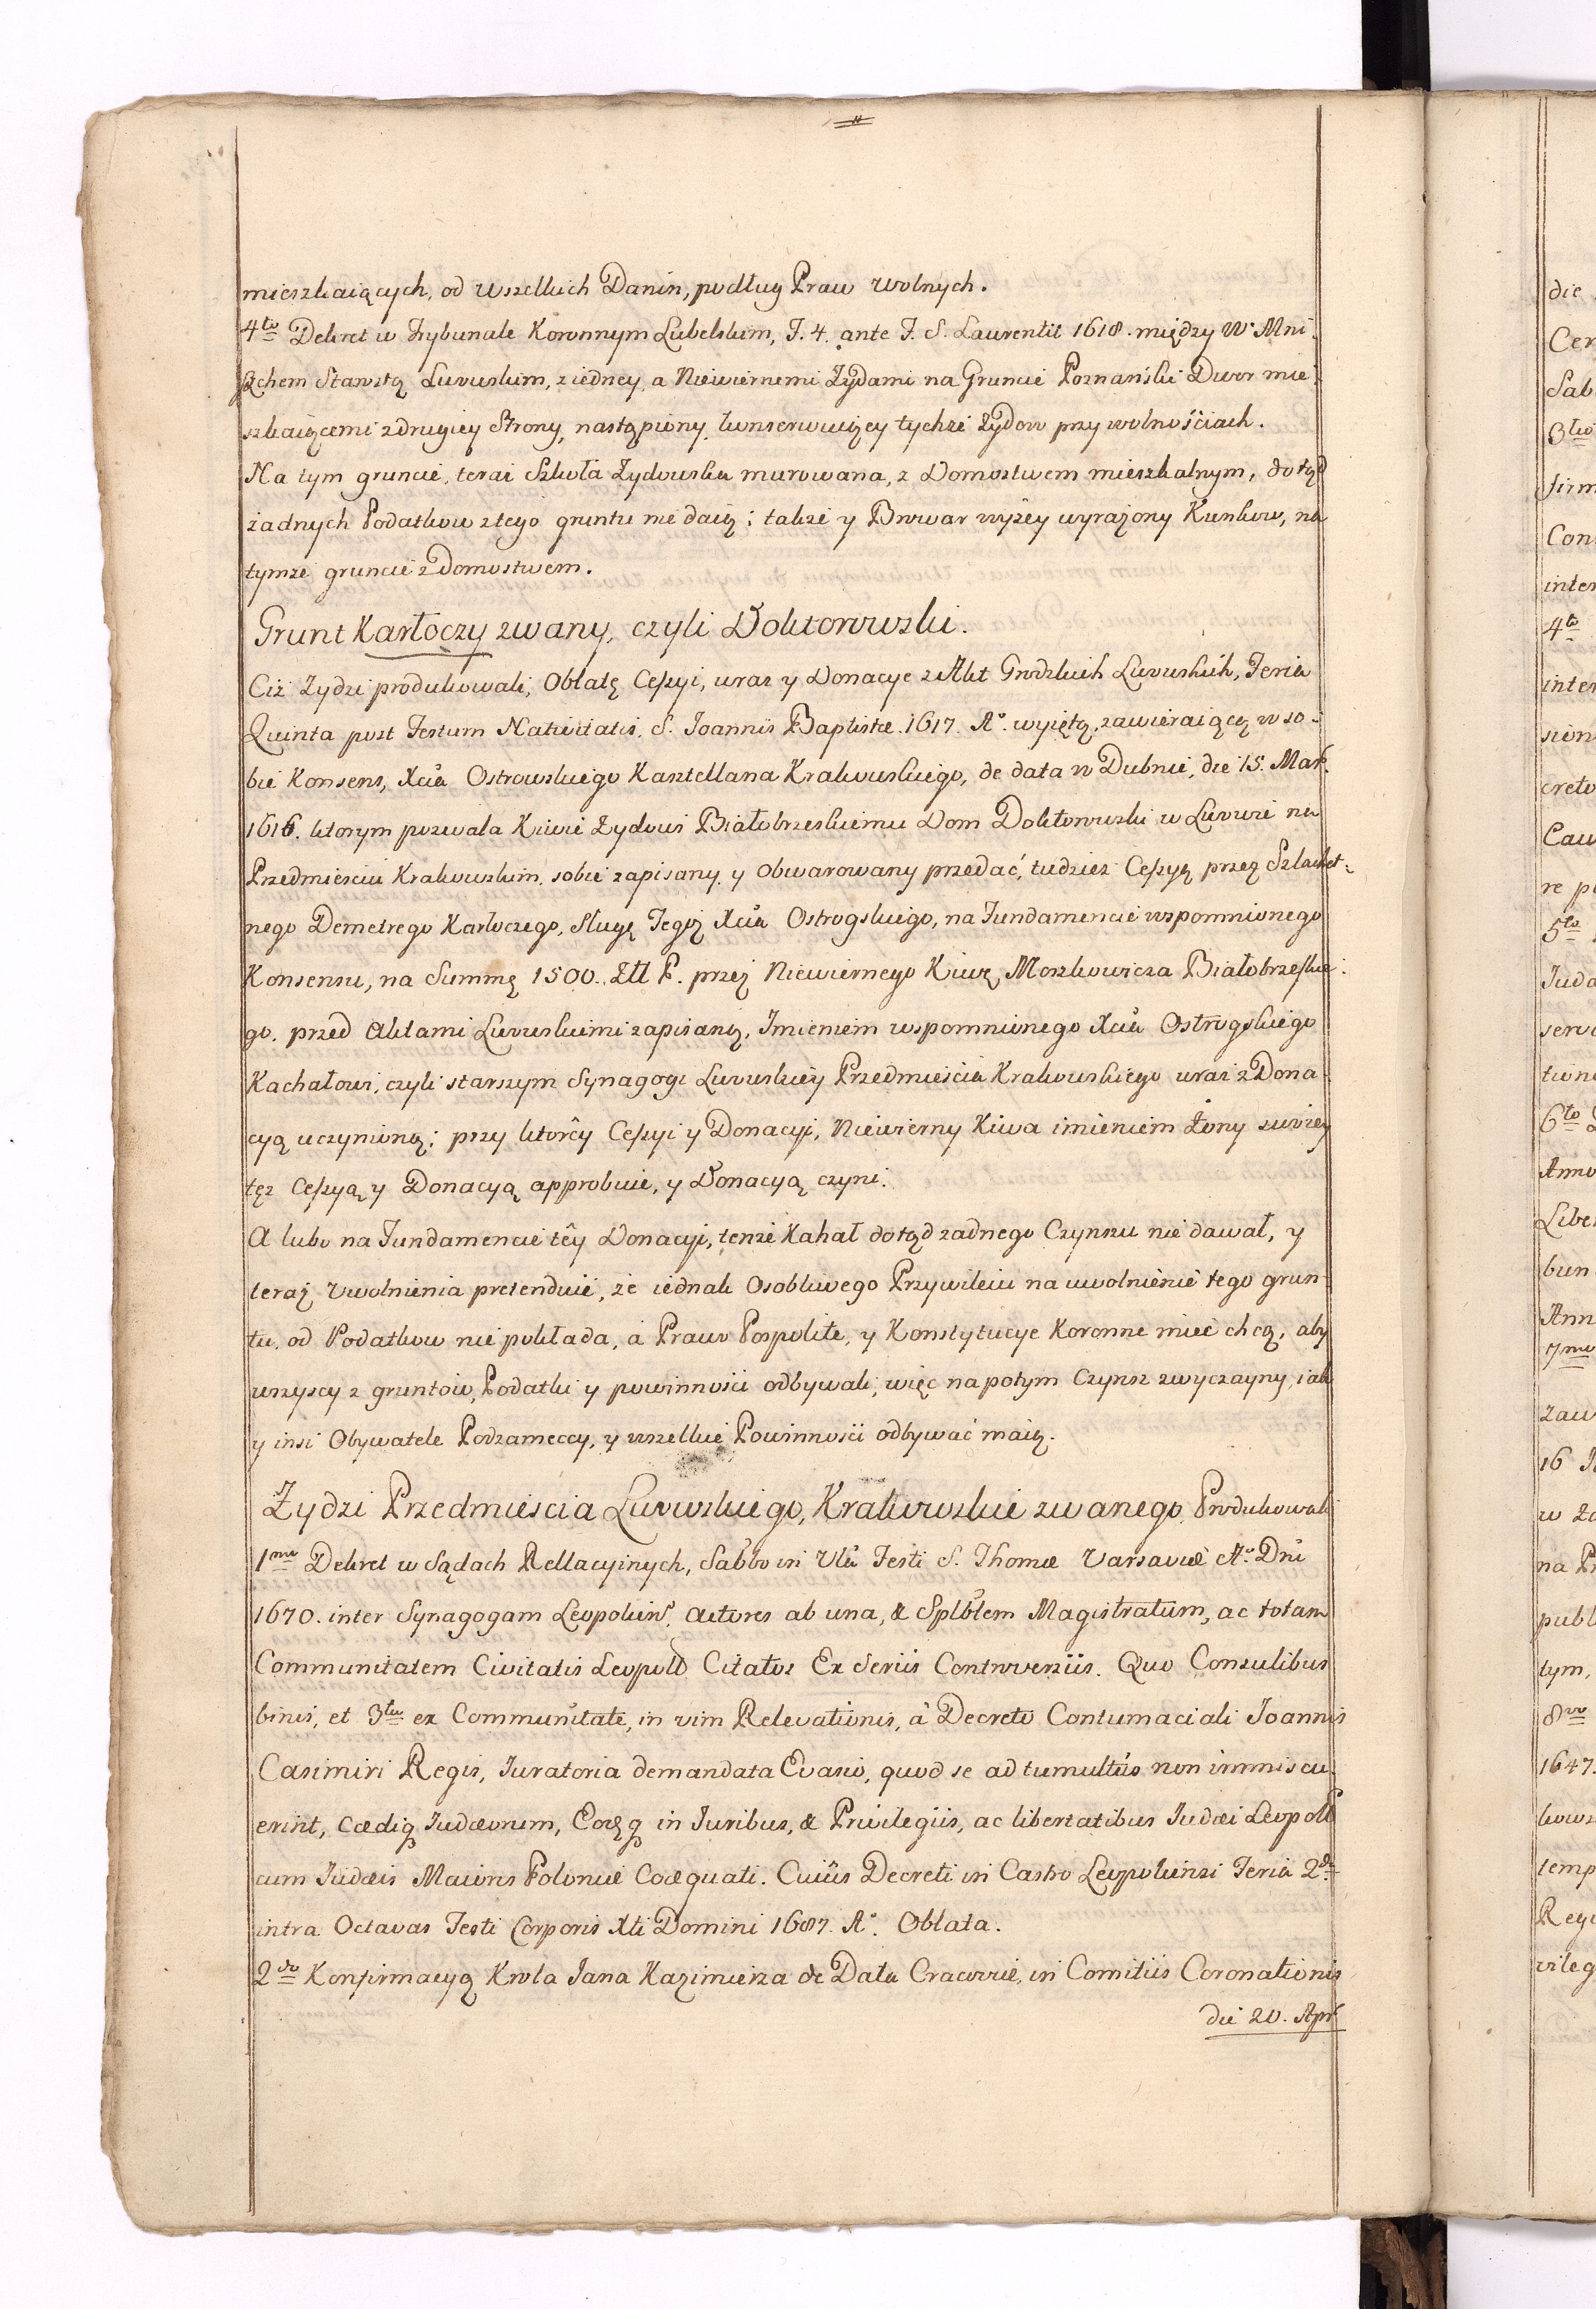 mieszkaiących, od wszelkich Danin, podług Praw wolnych.
4to Dekret w Trybunale Koronnym Lubelskim, F. 4. ante F. S. Laurentii 1618. między W. Mni-
szchem Starostą Lwowskim, z iedney, a Niewiernemi Żydami na Gruncie Poznański Dwor mie-
szkaiącemi z drugiey Strony, nastąpiony, konserwuiący tychże Żydow przy wolnościach.
Na tym gruncie, teraz Szkoła Żydowska murowana, z Domostwem mieszkalnym, dotąd
żadnych Podatkow z tego gruntu nie daią; także y Browar wyżey wyrażony Kunkow, na
tymże gruncie z Domostwem.
Grunt Karłoczy zwany, czyli Doktorowski.
Ciż Żydzi produkowali, Oblatę Cessyi, wraz y Donacye z Akt Grodzkich Lwowskich, Feria
Quinta post Festum Nativitatis, S. Joannis Baptistæ. 1617. Ao. wyiętą, zawieraiącą w so-
bie Konsens, Xcia Ostrowskiego Kasztellana Krakowskiego, de data w Dubnie, die 15. Mar.
1616. ktorym pozwala Kiwie Żydowi Białobrzeskiemu Dom Doktorowski w Lwowie na
Przedmieściu Krakowskim, sobie zapisany, y obwarowany przedać, tudzież Cessyą przez Szlachet-
nego Demetrego Karłoczego, Sługę Tegoż Xcia Ostrogskiego, na Fundamencie wspomnionego
Konsensu, na Summę 1500. Złł P. przez Niewiernego Kiwę Moszkowicza Białobrzeskie-
go, przed Aktami Lwowskiemi zapisaną, Imieniem wspomnionego Xcia Ostrogskiego
Kachałowi, czyli starszym Synagogi Lwowskiey Przedmieścia Krakowskiego wraz z Dona-
cyą uczynioną; przy ktorey Cessyi y Donacyi, Niewierny Kiwa imieniem Żony swoiey
też Cessyą, y Donacyą approbuie, y Donacyą czyni.
A lubo na Fundamencie tey Donacyi, tenże Kahał dotąd żadnego Czynszu nie dawał, y
teraz Uwolnienia pretenduie, że iednak Osobliwego Przywileiu na uwolnienie tego grun-
tu, od Podatkow nie pokłada, a Prawo Pospolite, y Konstytucye Koronne mieć chcą, aby
wszyscy z gruntow, Podatki y powinności odbywali, więc napotym Czynsz zwyczayny, iak
y insi Obywatele Podzameccy, y wszelkie Powinności odbywać maią.
Żydzi Przedmieścia Lwowskiego, Krakowskie zwanego, Produkowali
1mo Dekret w Sądach Rellacyinych, Sabbo in Vla Festi S. Thomæ Varsaviæ Ao. Dni
1670. inter Synagogam Leopolien. Actores ab una, & Splblem Magistratum, ac totam
Communitatem Civitatis Leopold Citatos Ex Seriis Controversiis. Quo Consulibus
binis, et 3tio ex Communitate, in vim Relevationis, à Decreto Contumaciali Joannis
Casimiri Regis, Iuratoria demandata Evasio, quod se ad tumultus non immiscu-
erint, Cædiq Iudæorum, Eorq in Iuribus, & Privilegiis, ac libertatibus Iudæi Leopoll
cum Iudæis Maioris Poloniæ Coæquati. Cuius Decreti in Castro Leopoliensi Feria 2da
intra Octavas Festi Corporis Xti Domini 1687. Ao. Oblata.
2do Konfirmacyą Krola Jana Kazimierza de Data Cracoviæ, in Comitiis Coronationis
die 20. Apr